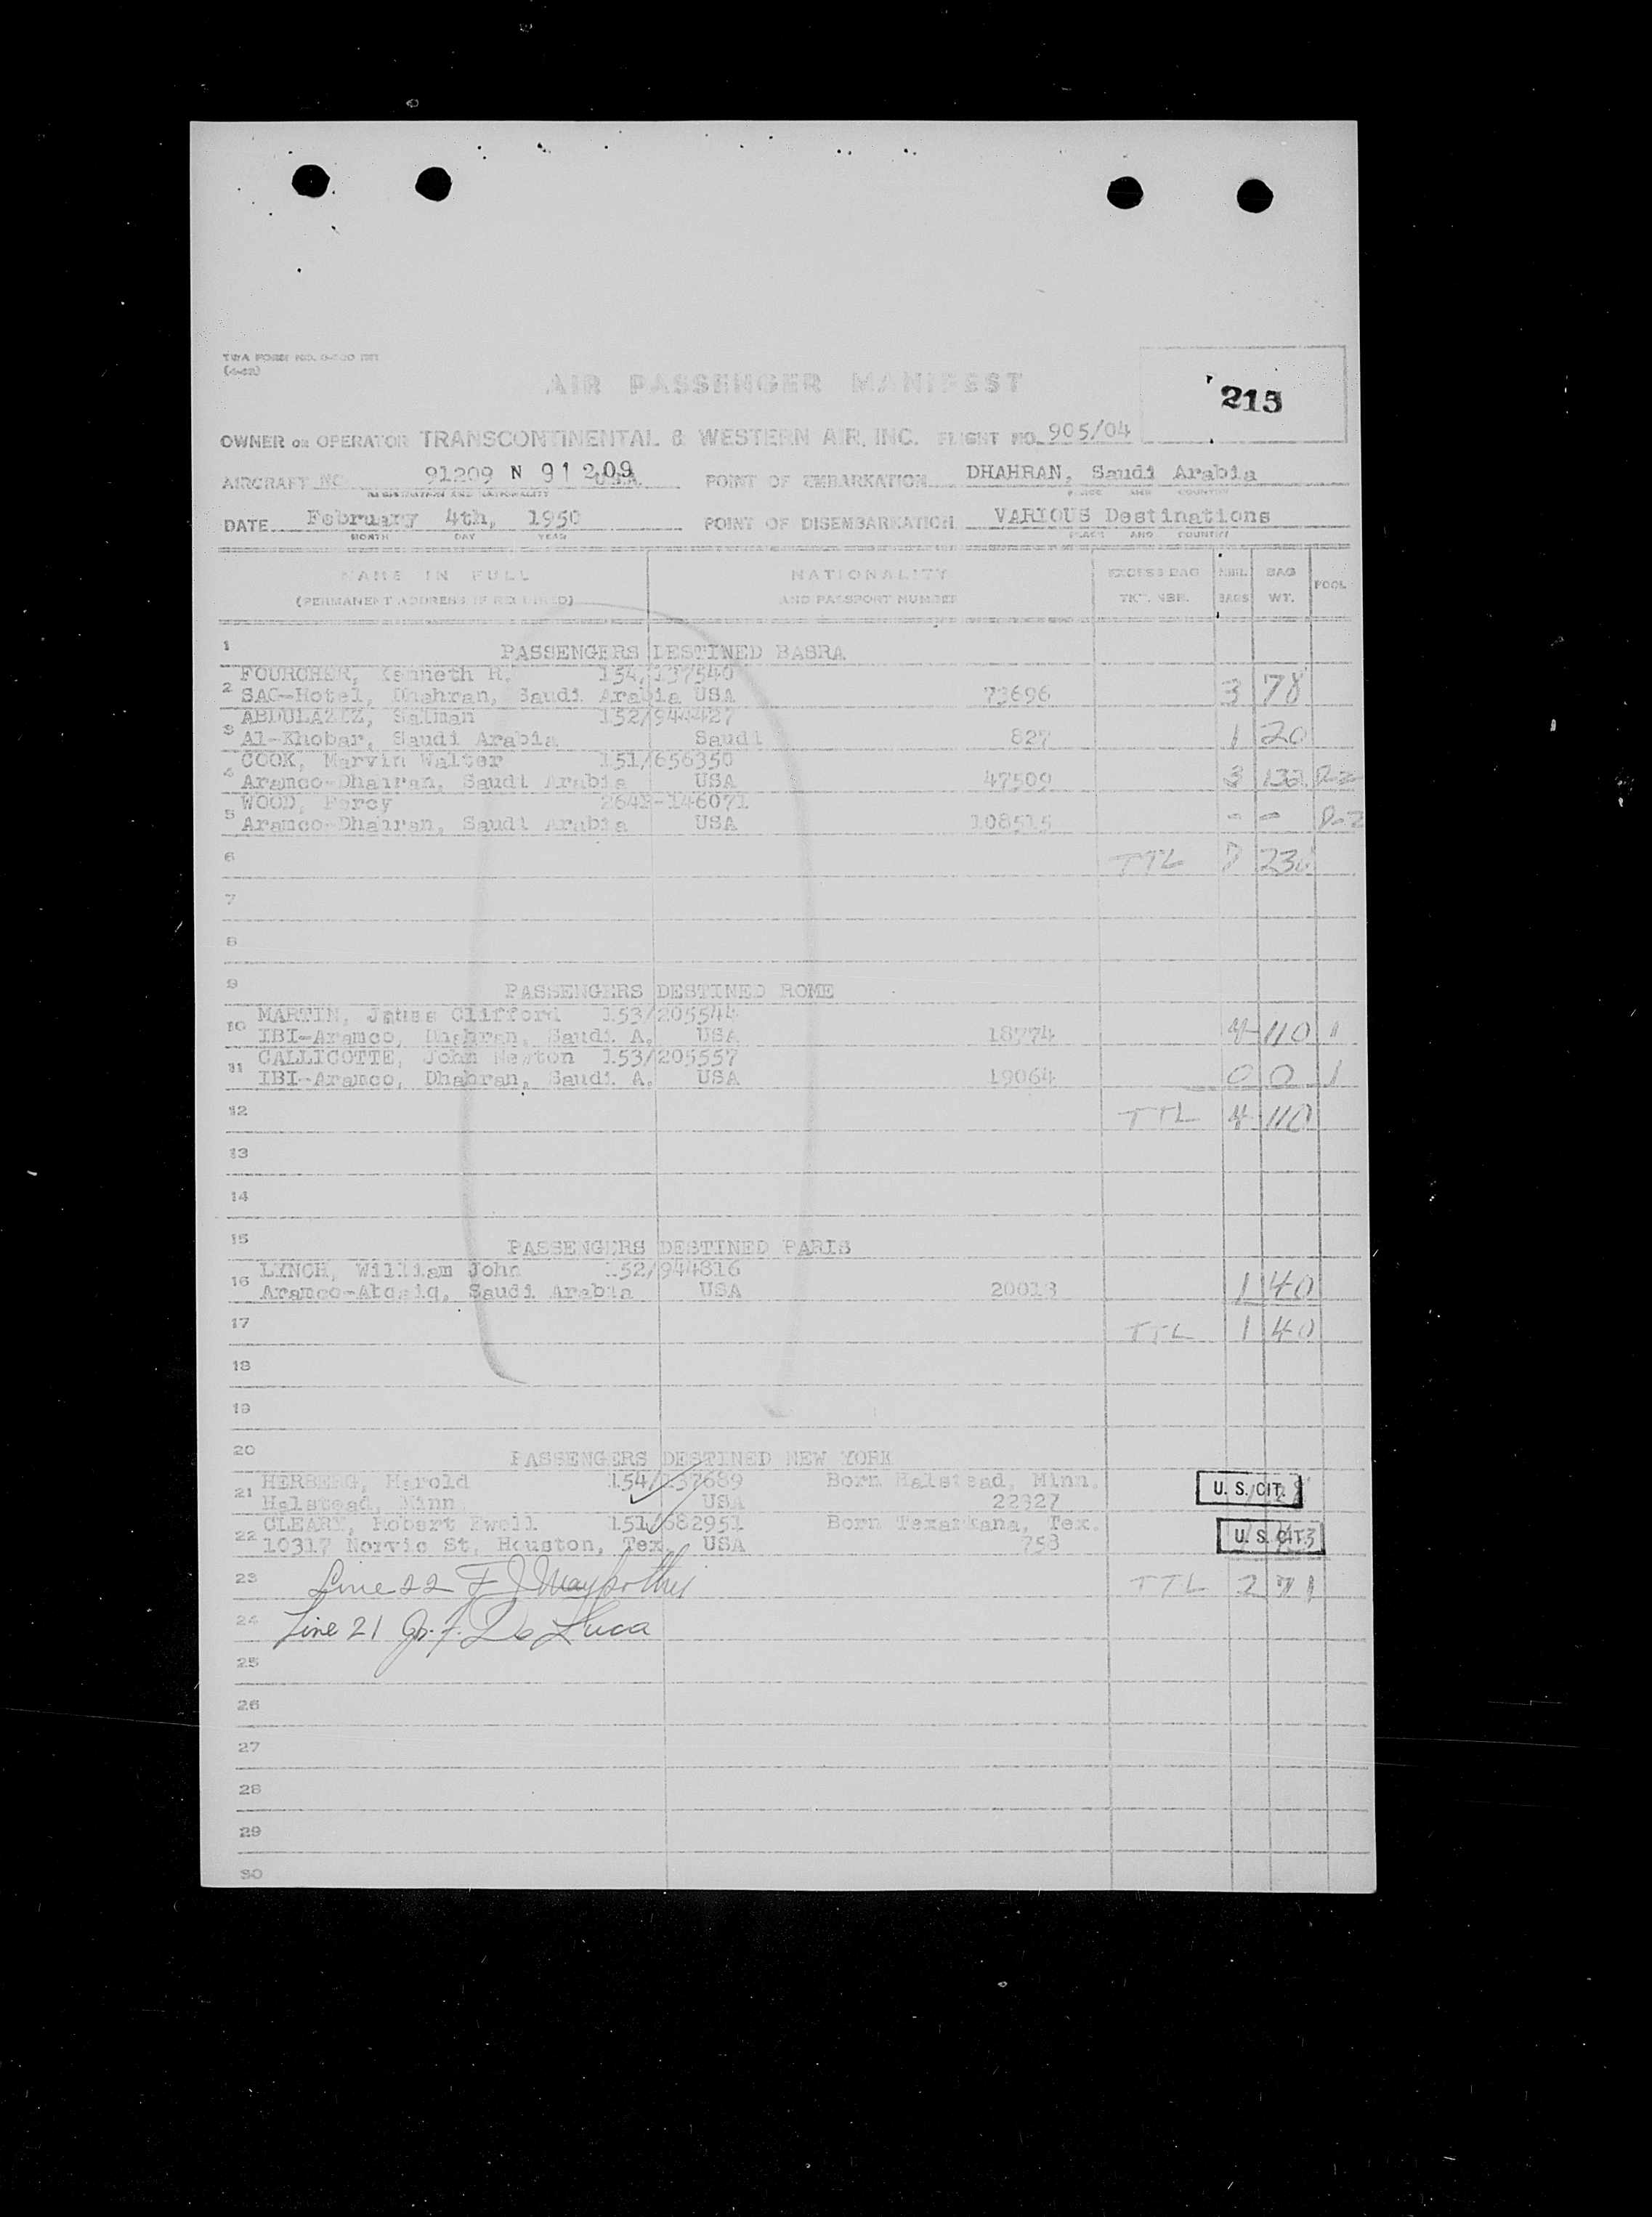 TWA FORM NO.
AIR PASSENGER MANIFEST
215
OWNER OR OPERATOR TRANSCONTINENTAL & WESTERN AIR, INC. FLIGHT NO. 905/04
AIRCRAFT NO. 91209 N 91209 POINT OF EMBARKATION DHAHRAN, Saudi Arabia
REGISTRATION AND NATIONALITY PLACE AND COUNTRY
DATE February 4th, 1950 POINT OF DISEMBARKATION VARIOUS Destinations
MONTH DAY YEAR PLACE AND COUNTRY
NAME IN FULL NATIONALITY EXCESS BAG NBR. BAG POOL
(PERMANENT ADDRESS IF REQUIRED) AND PASSPORT NUMBER TKT. NBR. BAGS WT.
1 PASSENGERS DESTINED BASRA
FOURCHER, Kenneth R. 154/137540
2 SAG-Hotel, Dhahran, Saudi Arabia USA 73696 3 78
ABDULAZIZ, Salman 152/944427
3 Al-Khobar, Saudi Arabia Saudi 827 1 20
COOK, Marvin Walter 151/656350
4 Aramco-Dhahran, Saudi Arabia USA 47509 3 P-2
WOOD, Percy 146071
5 Aramco-Dhahran, Saudi Arabia USA 108515 - - P-2
6 TTL
7
8
9 PASSENGERS DESTINED ROME
MARTIN, James Clifford 153/205544
10 IBI-Aramco, Dhahran, Saudi A. USA 18774 4 110 1
CALLICOTTE, John Newton 153/205557
11 IBI-Aramco, Dhahran, Saudi A. USA 19064 0 0 1
12 TTL 4 110
13
14
15 PASSENGERS DESTINED PARIS
LYNCH, William John 152/944816
16 Aramco-Abqaiq, Saudi Arabia USA 20018 1 40
17 TTL 1 40
18
19
20 PASSENGERS DESTINED NEW YORK
HERBERG, Harold 154/137689 Born Halstead, Minn.
21 Halstead, Minn USA 22327 U. S. CIT.
CLEARY, Robert Ewell 151/682951 Born Texarkana, Tex.
22 10317 Norvic St, Houston, Tex. USA 758 U. S. CIT.
23 Line 22 F J TTL 2 71
24 Line 21 Jo. F. De Luca
25
26
27
28
29
30